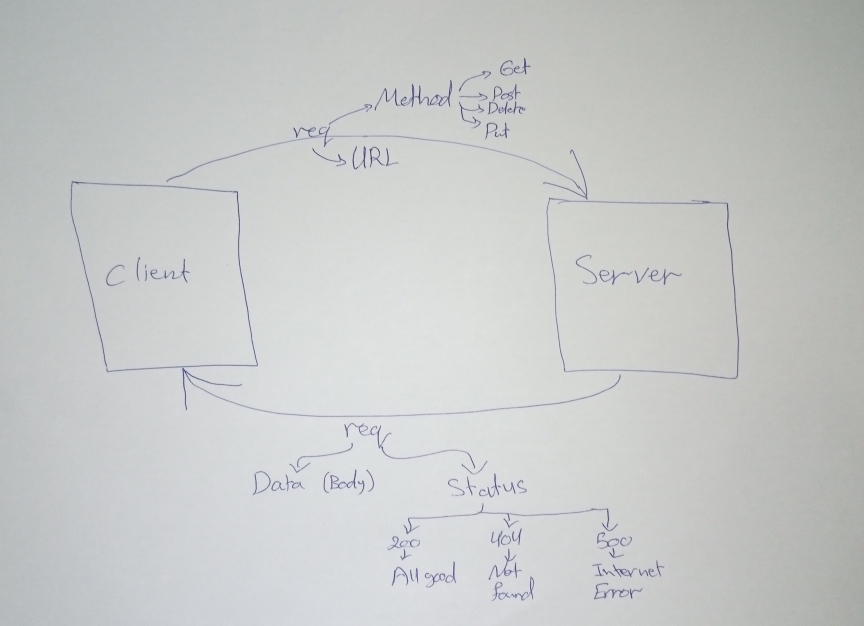 Get
Method
Post
Delete
Put
req
URL
Client
Server
req
Data (Body)
Status
200
404
500
All good
Not
found
Internet
Error